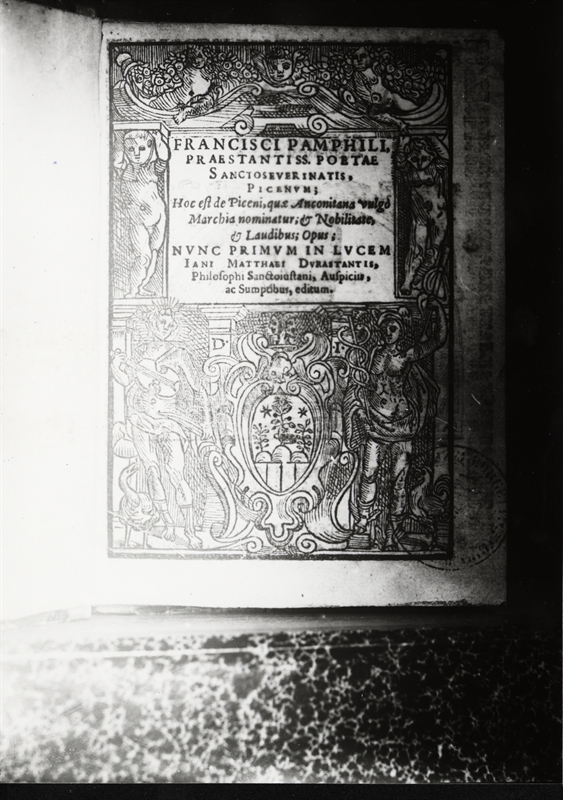 FRANCISCI PAMPHILI,
PRAESTANTISS. POETAE
SANCTOSEVERINATIS,
PICENVM;
Hoc est de Piceni, quæ Anconitana vulgò
Marchia nominatur; & Nobilitate,
& Laudibus; Opus;
NVNC PRIMVM IN LVCEM
IANI MATTHAEI DVRASTANTIS,
Philosophi Sanctoiustani, Auspiciis,
ac Sumptibus, editum.
D I